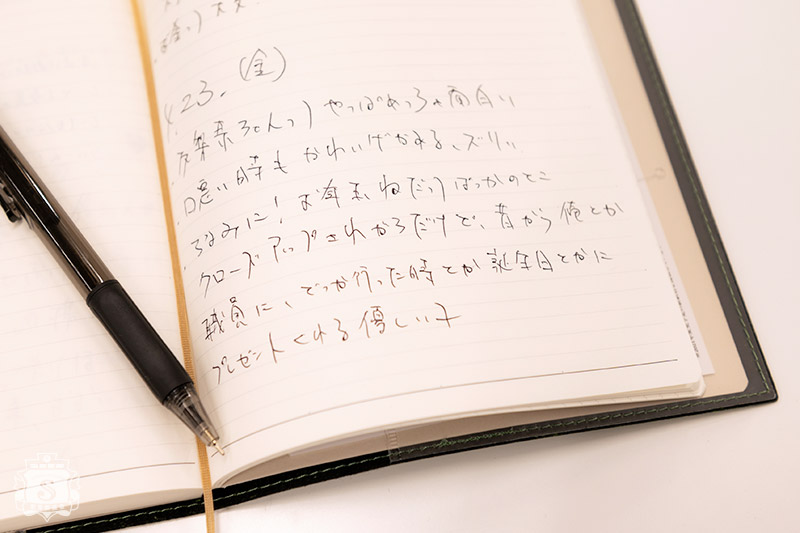 4.23.(金)
やっぱめっちゃ面白い
悪い時もかわいげがある、ズルい
ちなみに!お年玉ねだってばっかのとこ
クローズアップされがちだけど、昔から俺とか
職員に、どっか行った時とか誕生日とかに
プレゼントくれる優しい子